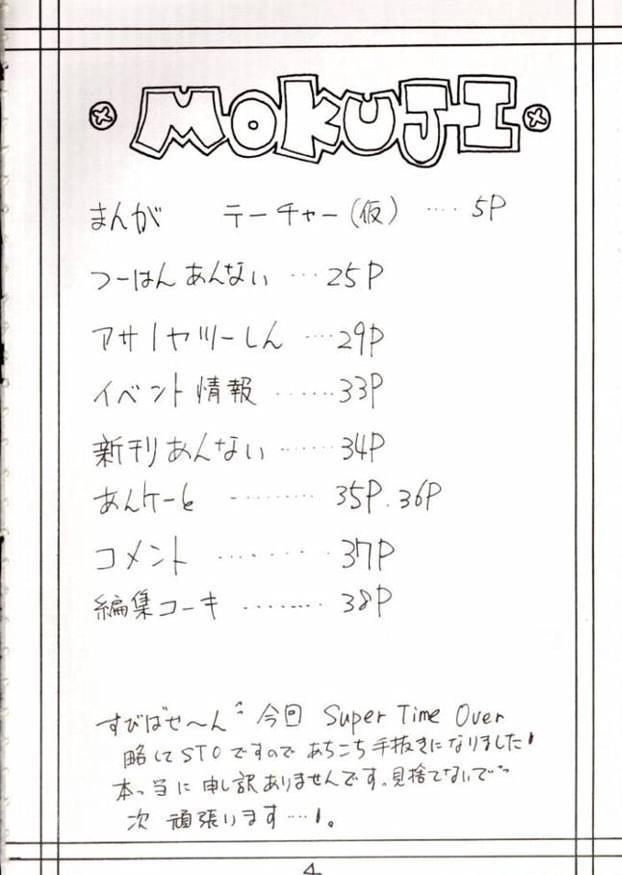 MOKUJI
まんが テーチャー(仮) ‥‥ 5P
つーはんあんない ‥‥25P
アサノヤツーしん ‥‥29P
イベント情報 ‥‥‥33P
新刊あんない ‥‥‥34P
あんケーと ‥‥‥‥ 35P.36P
コメント ‥‥‥‥ 37P
編集コーキ ‥‥‥‥ 38P
すびばせ〜ん 今回 Super Time Over
略してSTOですのであちこち手抜きになりました!
本っ当に申し訳ありませんです。見捨てないで
次 頑張います…!。
4